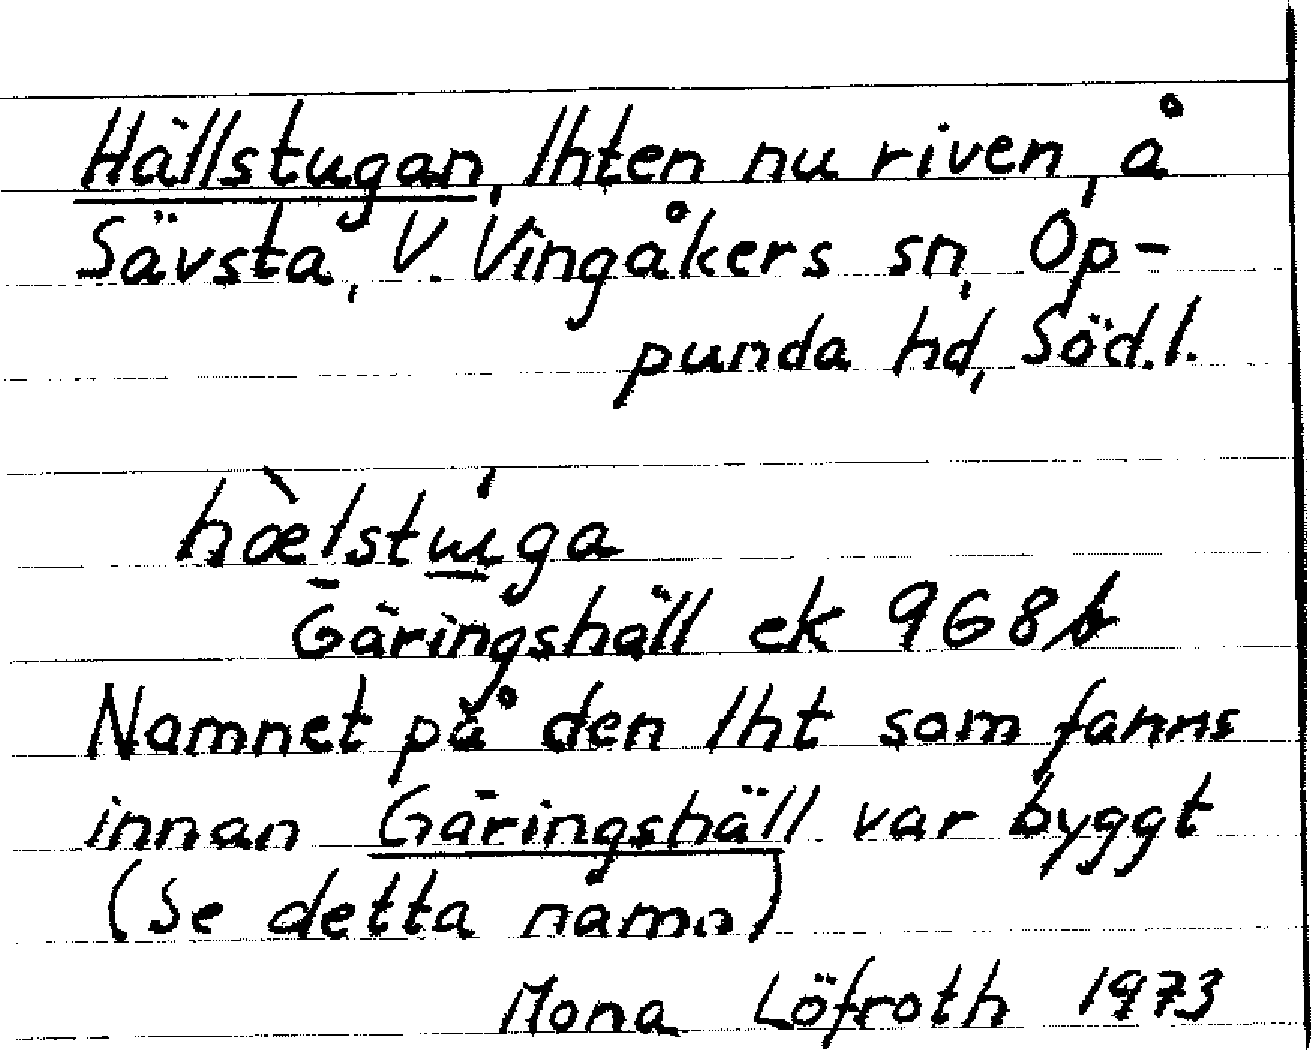 Hällstugan, lhten nu riven, å
Sävsta, V. Vingåkers sn, Op-
punda hd, Söd.l.
hæ̀lstɯ́ga
Gäringshäll ek 968b
Namnet på den lht som fanns
innan Gäringshäll var byggt
(Se detta namn)
Mona Löfroth 1973